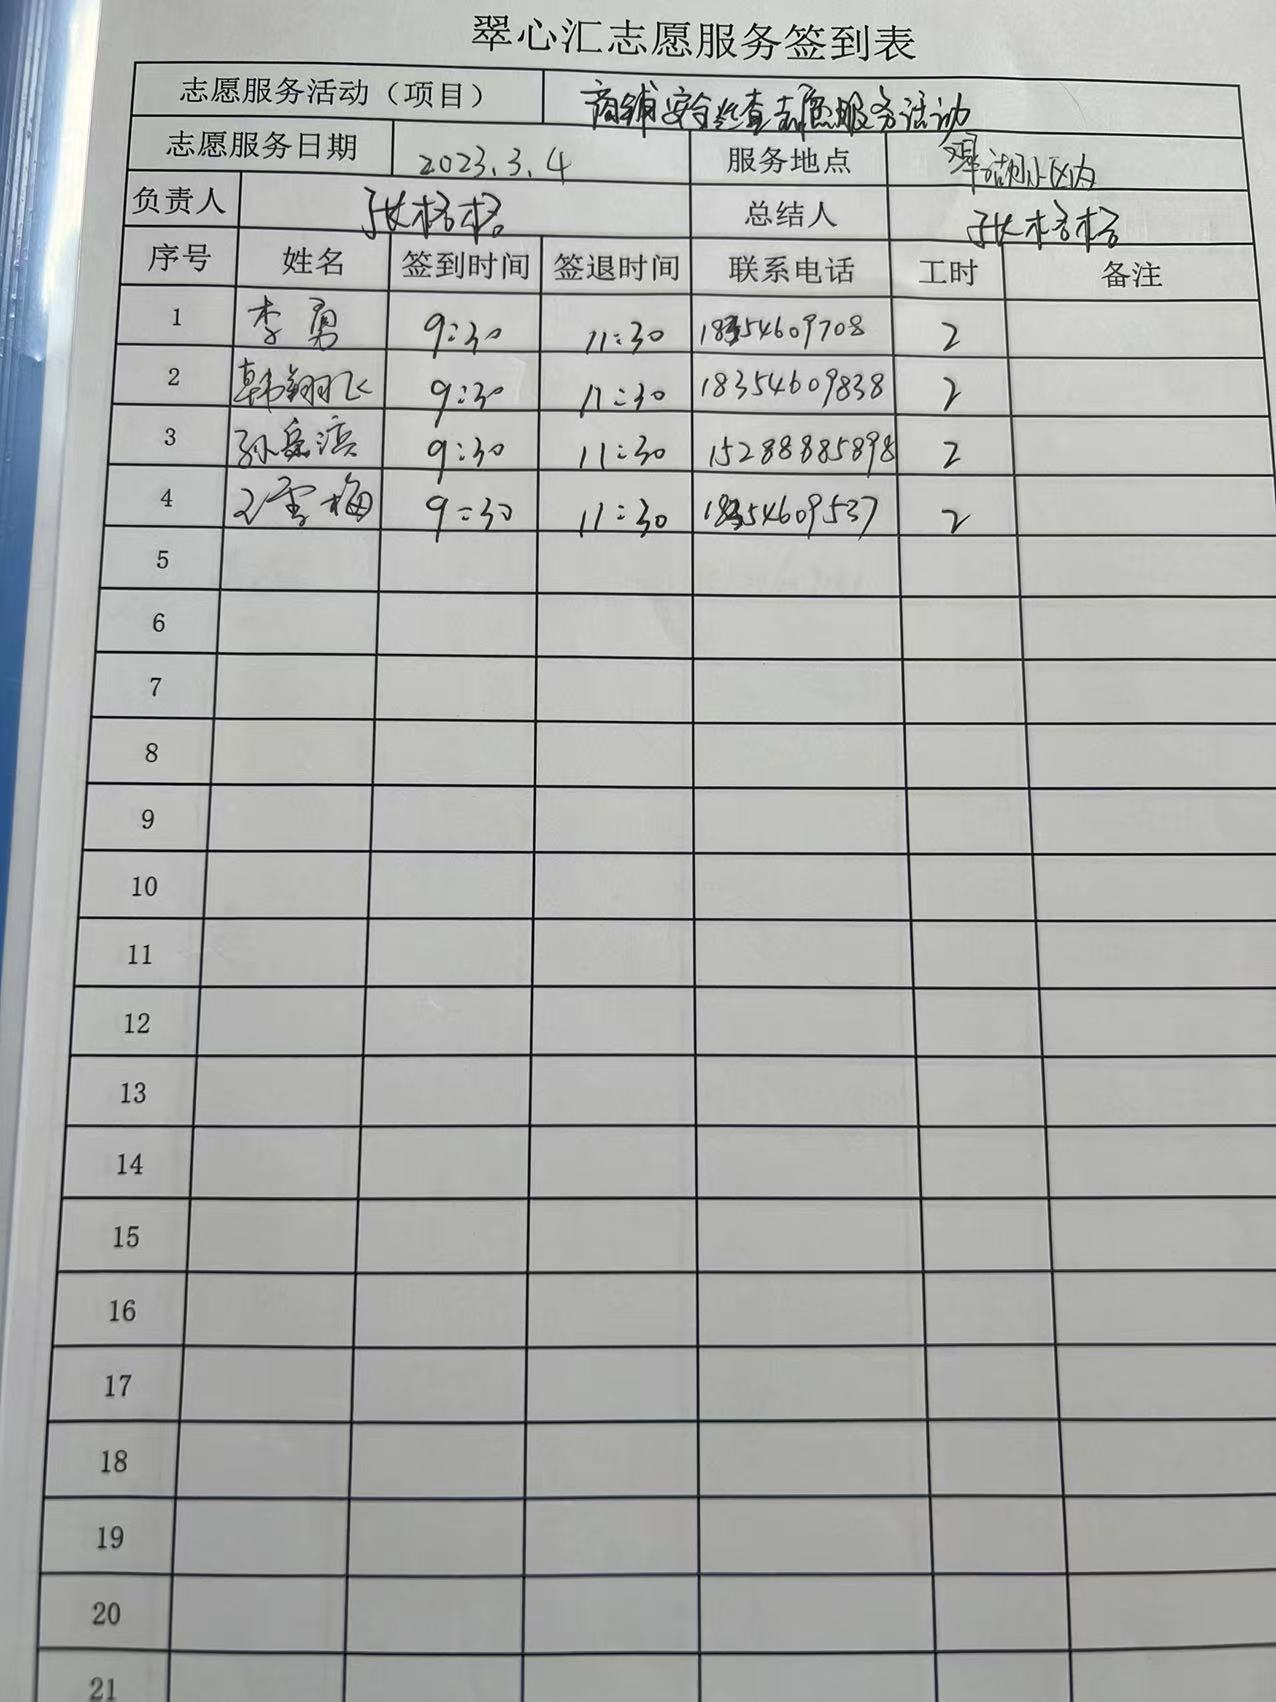 翠心汇志愿服务签到表
志愿服务活动（项目） 商铺安全检查志愿服务活动
志愿服务日期 2023.3.4 服务地点 翠湖小区内
负责人 张格格 总结人 张格格
序号 姓名 签到时间 签退时间 联系电话 工时 备注
1 李勇 9:30 11:30 18354609708 2
2 韩翔飞 9:30 11:30 18354609838 2
3 孙 滨 9:30 11:30 15288885898 2
4 王雪梅 9:30 11:30 18354609537 2
5
6
7
8
9
10
11
12
13
14
15
16
17
18
19
20
21